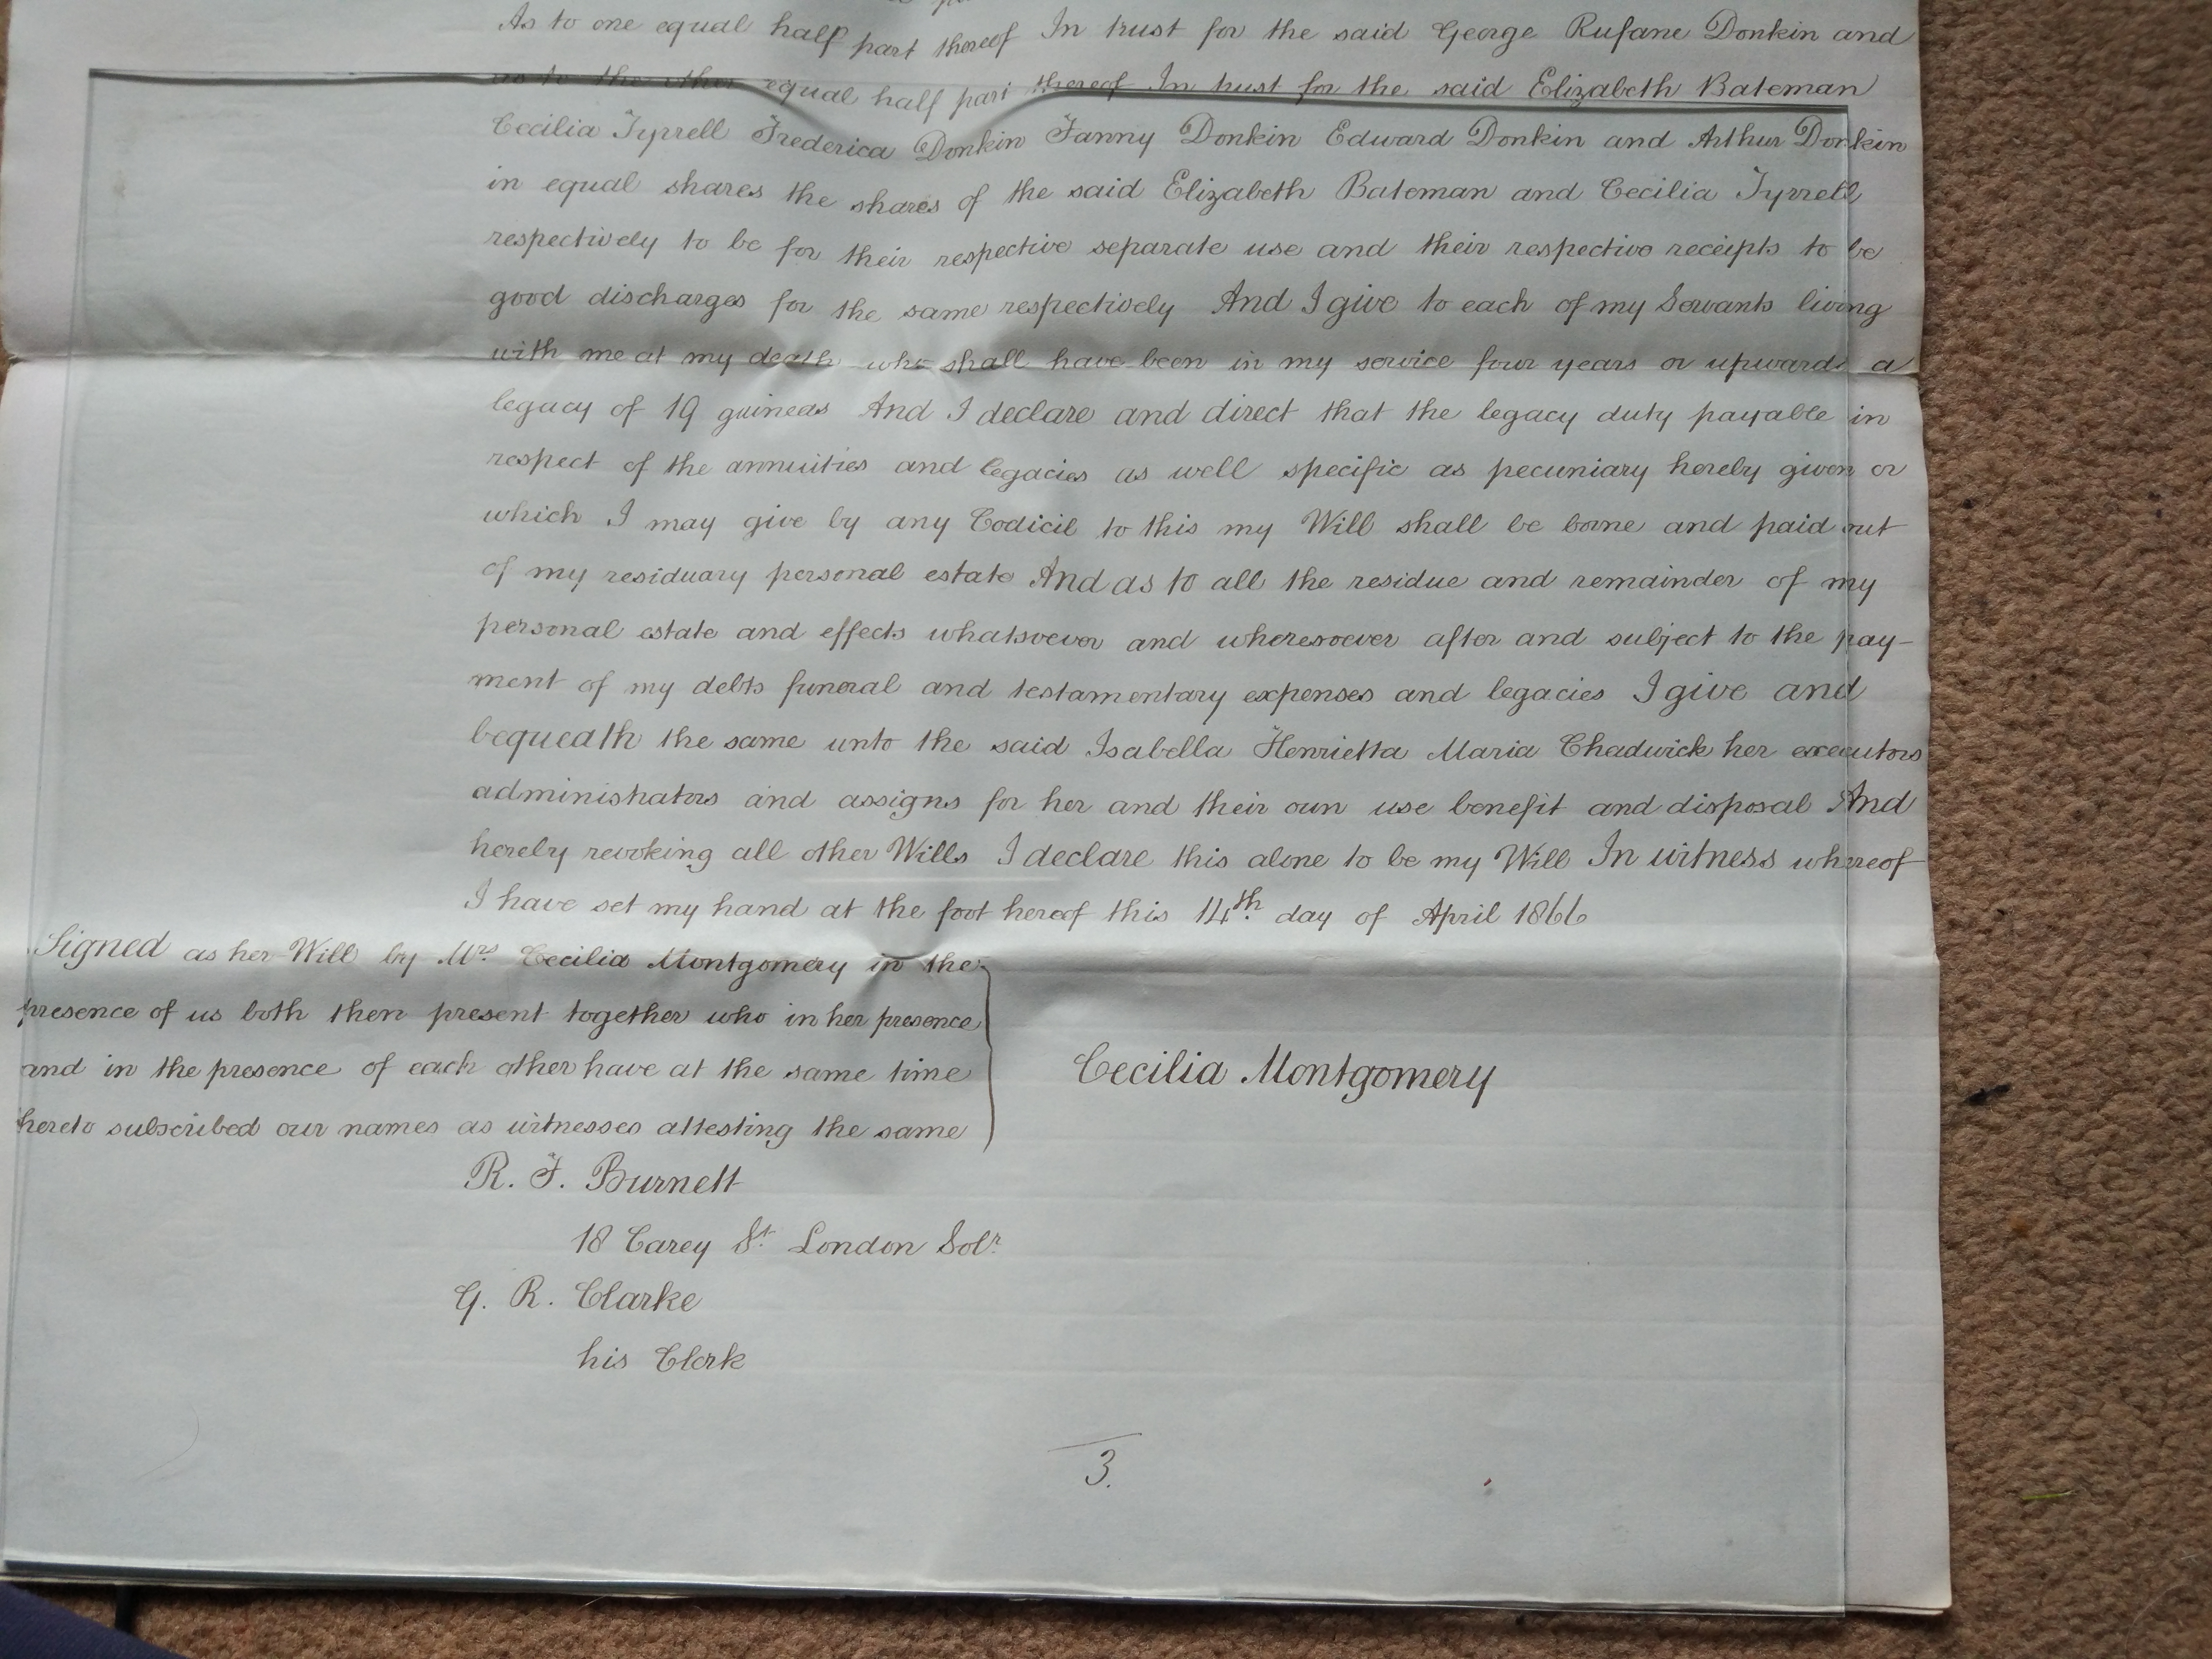 As to one equal half part thereof In trust for the said George Rufane Donkin and
as to the other equal half part thereof In trust for the said Elizabeth Bateman
Cecilia Tyrrell Frederica Donkin Fanny Donkin Edward Donkin and Arthur Donkin
in equal shares the shares of the said Elizabeth Bateman and Cecilia Tyrrell
respectively to be for their respective separate use and their respective receipts to be
good discharges for the same respectively And I give to each of my Servants living
with me at my death who shall have been in my service four years or upwards a
legacy of 19 guineas And I declare and direct that the legacy duty payable in
respect of the annuities and legacies as well specific as pecuniary hereby given or
which I may give by any Codicil to this my Will shall be borne and paid out
of my residuary personal estate And as to all the residue and remainder of my
personal estate and effects whatsoever and wheresoever after and subject to the pay-
ment of my debts funeral and testamentary expenses and legacies I give and
bequeath the same unto the said Isabella Henrietta Maria Chadwick her executors
administrators and assigns for her and their own use benefit and disposal And
hereby revoking all other Wills I declare this alone to be my Will In witness whereof
I have set my hand at the foot hereof this 14th day of April 1866
Signed as her Will by Mrs Cecilia Montgomery in the
presence of us both then present together who in her presence
and in the presence of each other have at the same time
hereto subscribed our names as witnesses attesting the same
Cecilia Montgomery
R. F. Burnett
18 Carey St. London Solr.
G. R. Clarke
his Clerk
3.